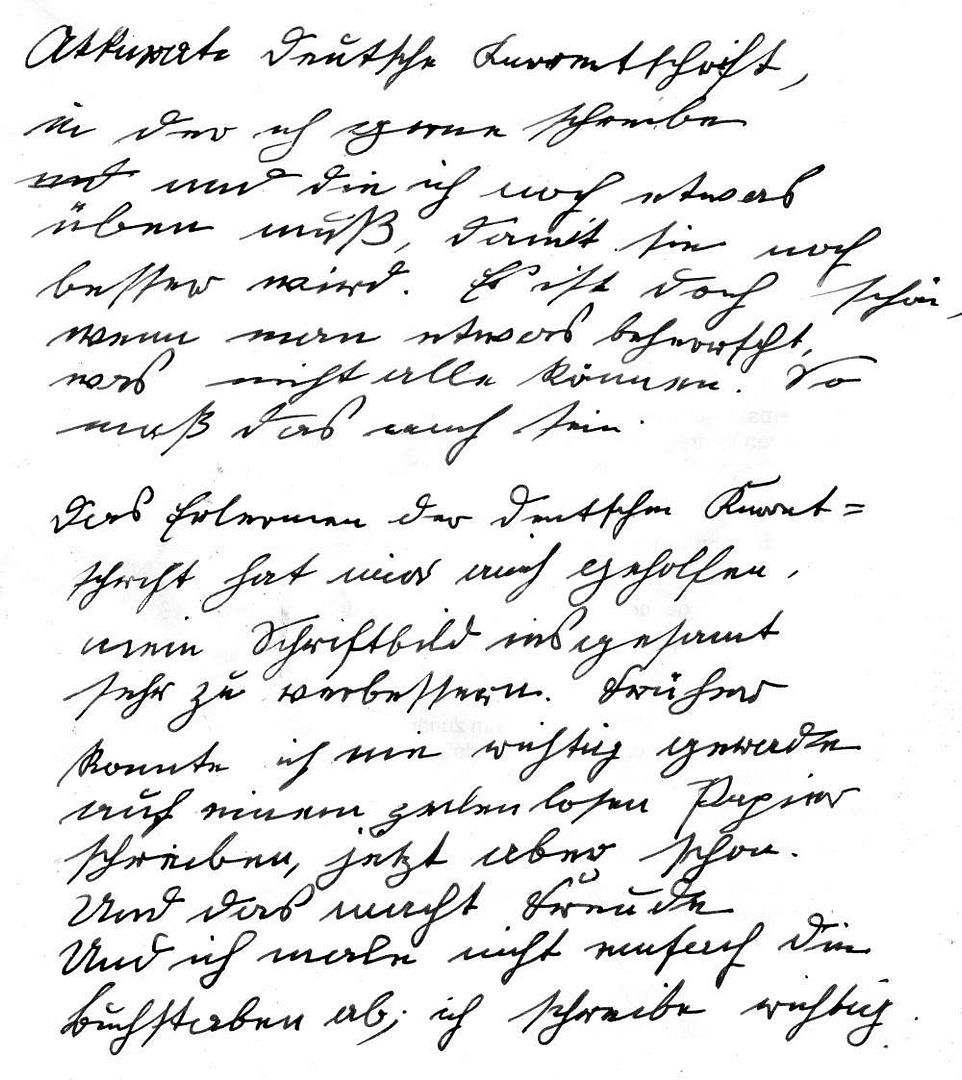 Akkurate deutsche Kurrentschrift,
in der ich gerne schreibe
und und die ich noch etwas
üben muß, damit sie noch
besser wird. Es ist doch schön,
wenn man etwas beherrscht,
was nicht alle können. So
muß das auch sein.
Das Erlernen der deutschen Kurrent=
schrift hat mir auch geholfen,
mein Schriftbild insgesamt
sehr zu verbessern. Früher
konnte ich nie richtig gerade
auf einem zeilenlosen Papier
schreiben, jetzt aber schon.
Und das macht Freude
Und ich male nicht einfach die
Buchstaben ab; ich schreibe richtig.